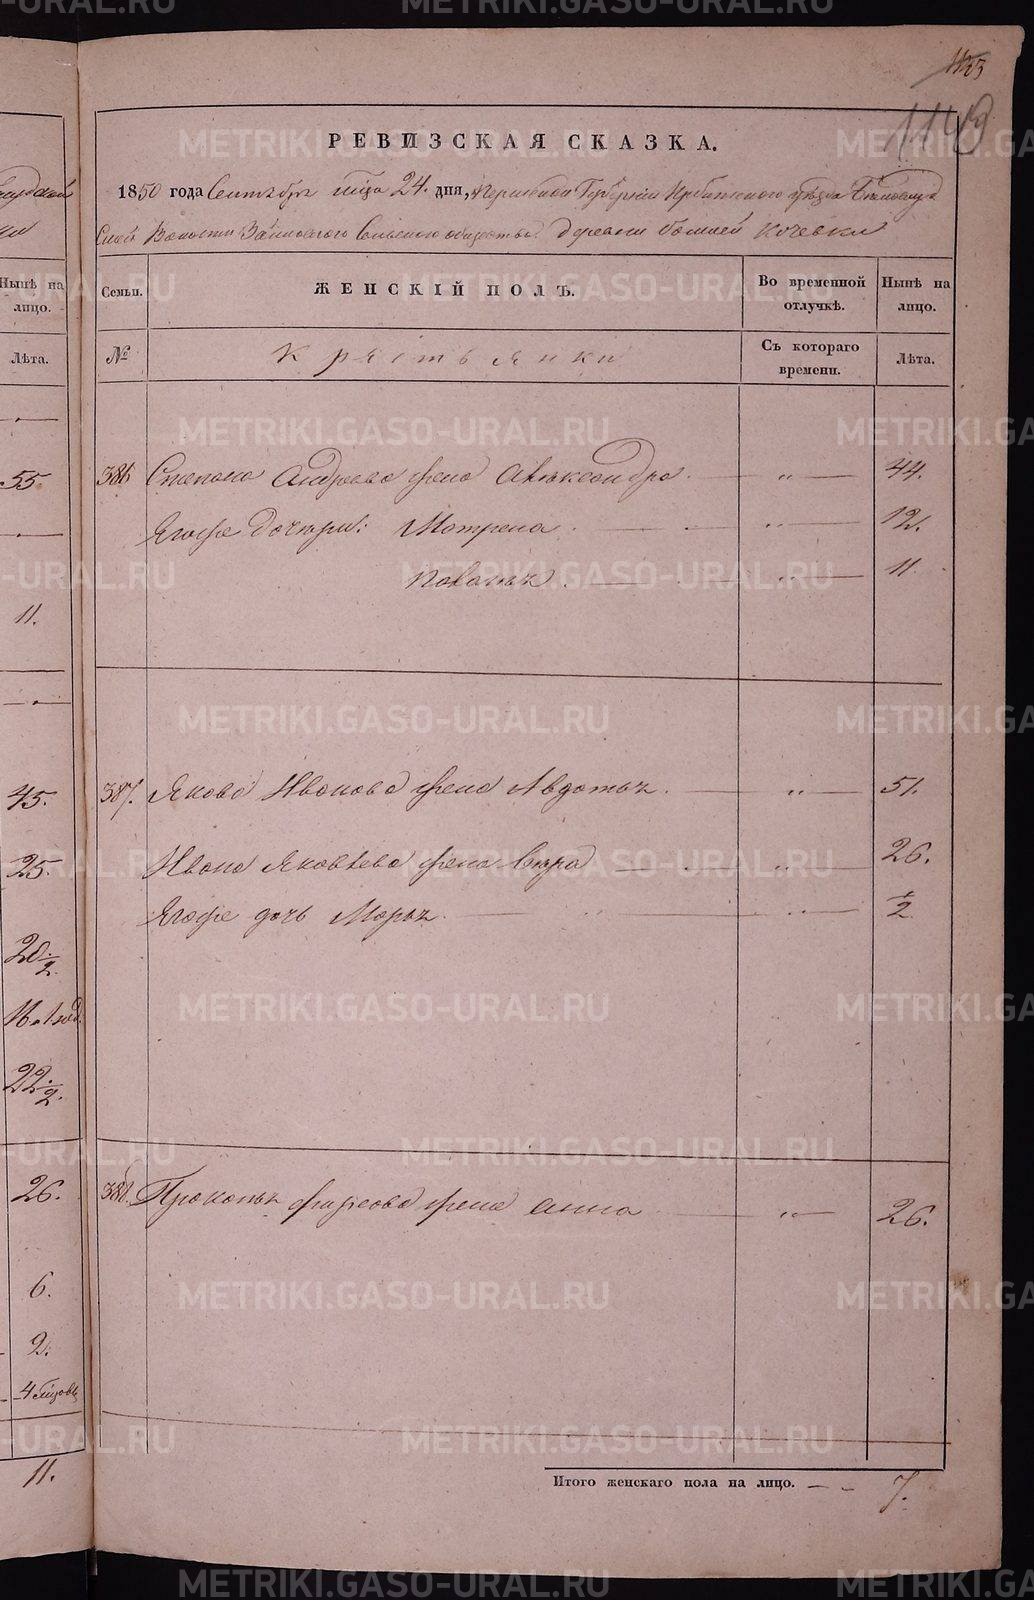 1133
1149
РЕВИЗСКАЯ СКАЗКА.
1850 года Сентября мца 24. дня, Пермской Губернии Ирбитского уѣзда Бѣлослуд
ской Волости Зайковского Сельского общества деревни большей Кочевки
Нынѣ на лицо.
Семьи.
ЖЕНСКІЙ ПОЛЪ.
Во временной отлучкѣ.
Нынѣ на лицо.
Лѣта.
№
Крестьянки
Съ котораго времени.
Лѣта.
55
386 Степана Андреева жена Александра. — „ — 44.
Его же дочери: Матрена — „ — 12.
Пелагея — „ — 11
11.
45. 387. Якова Иванова жена Авдотья. — „ — 51.
25. Ивана Яковлева жена Вѣра — „ — 26.
Его же дочь Марья — „ — ½
20½
22½
26. 388. Прокопья Фирсова жена Анна — „ — 26.
6.
2.
11.
Итого женскаго пола на лицо. — — 7.
METRIKI.GASO-URAL.RU